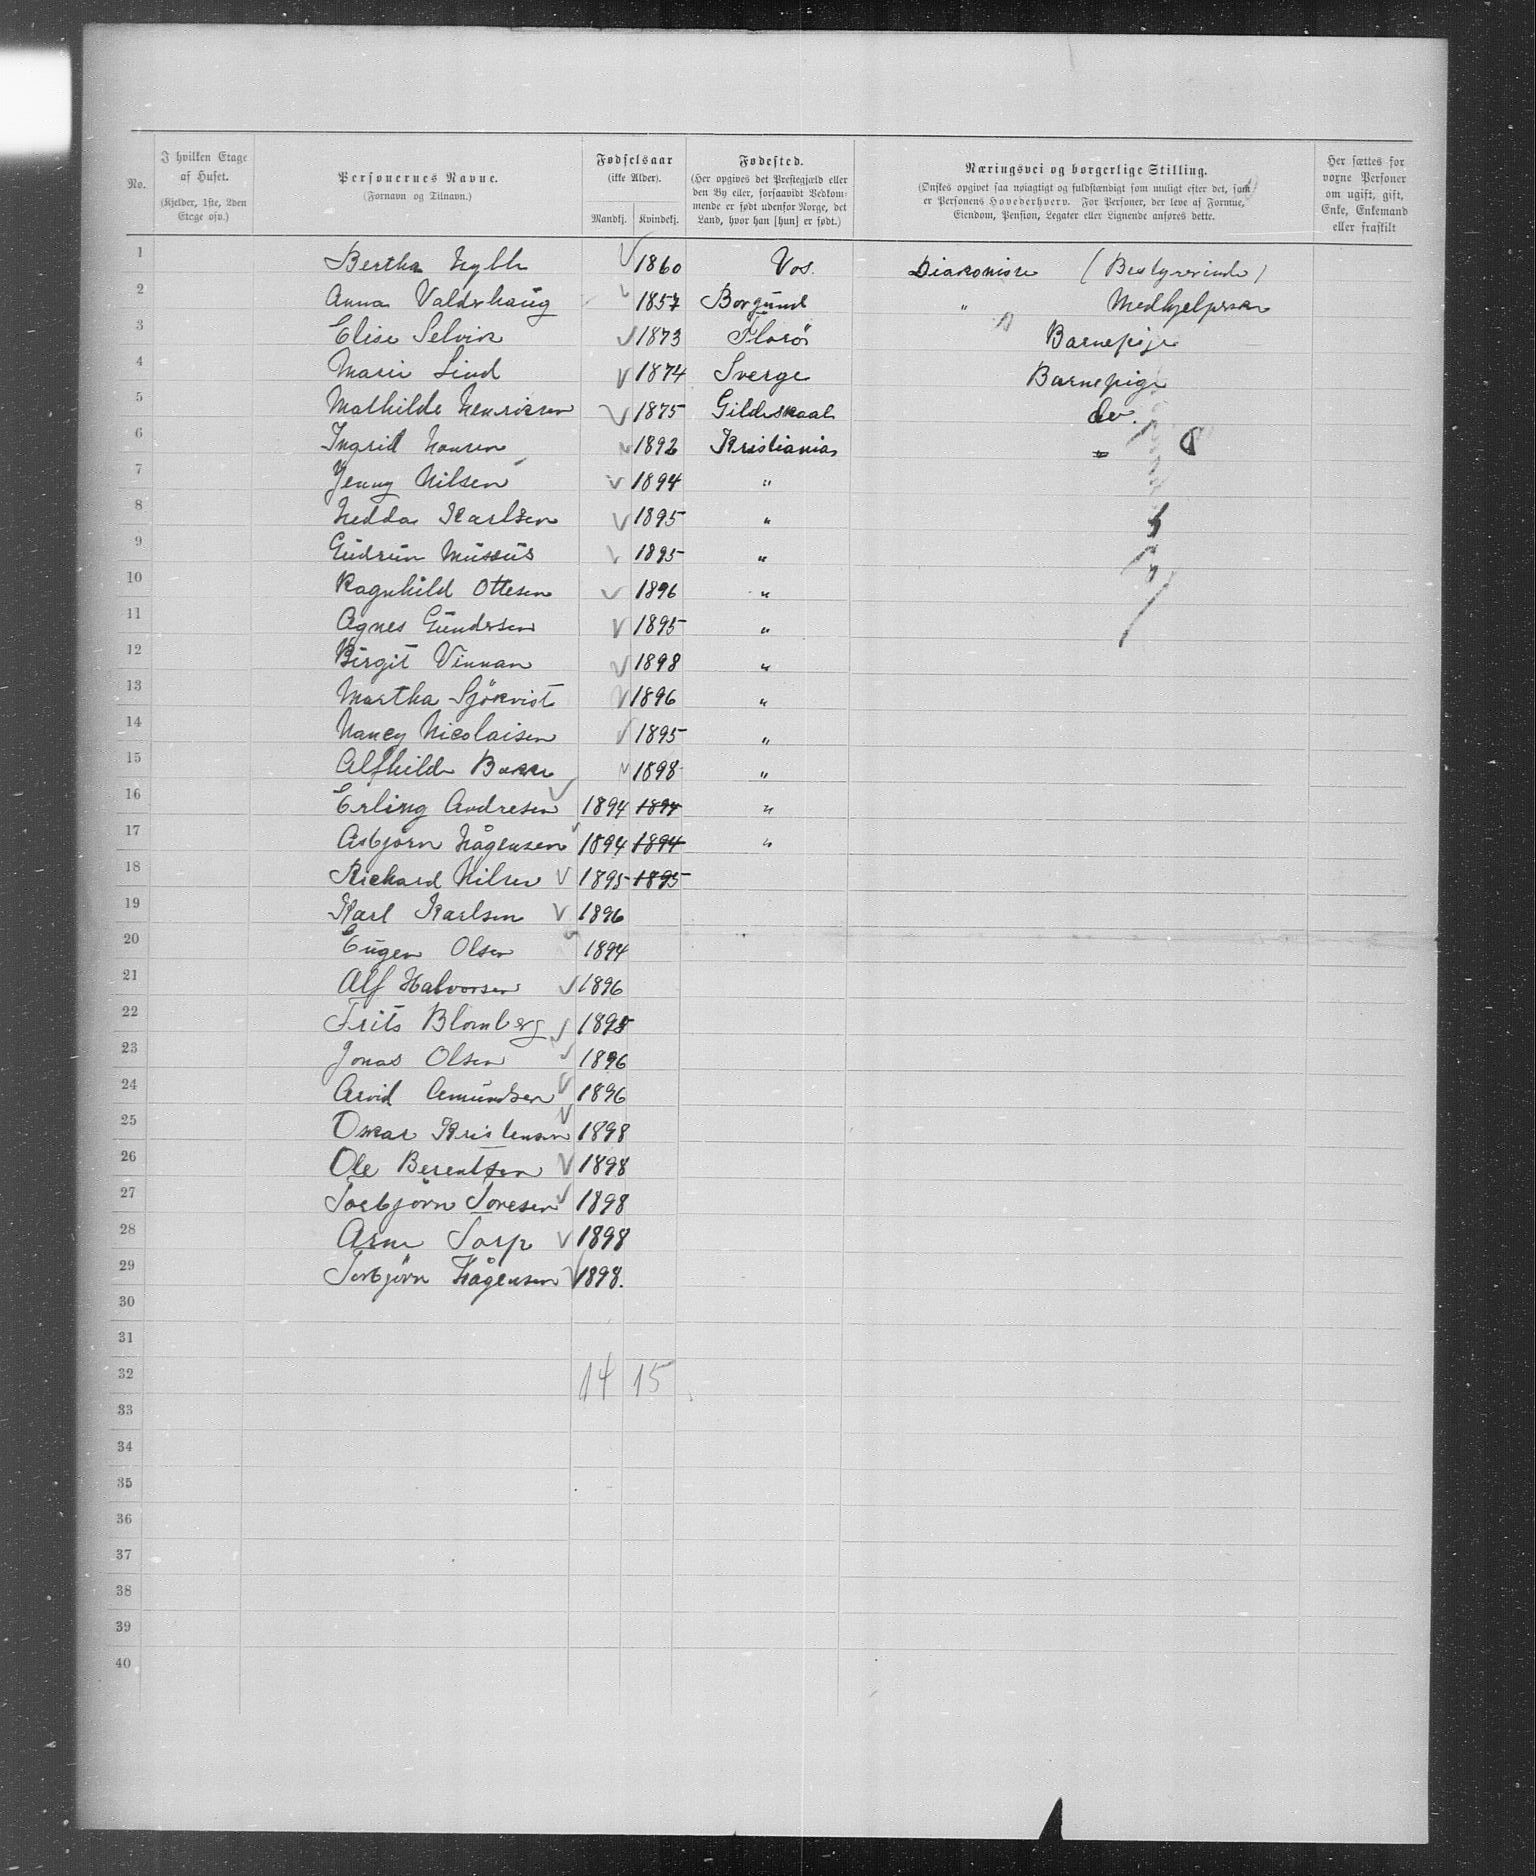 No.
I hvilken Etage af Huset.
(Kjelder, 1ste, 2den Etage osv.)
Personernes Navne.
(Fornavn og Tilnavn.)
Fødselsaar
(ikke Alder).
Mandkj. Kvindekj.
Fødested.
(Her opgives det Prestegjæld eller den By eller, forsaavidt Vedkommende er født udenfor Norge, det Land, hvor han [hun] er født.)
Næringsvei og borgerlige Stilling.
(Ønskes opgivet saa nøiagtigt og fuldstændigt som muligt efter det, som er Personens Hovederhverv. For Personer, der leve af Formue, Eiendom, Pension, Legater eller Lignende anføres dette.
Her sættes for voxne Personer om ugift, gift, Enke, Enkemand eller fraskilt
1 Bertha 1860 Vos. Diakonisse (Bestyrerinde)
2 Anna Valderhaüg 1857 Borgünd " Medhjelperske
3 Elise Selvik 1873 Florö Barnepige
4 Marie Lind 1874 Sverge Barnepige
5 Mathilde Henriksen 1875 Gildeskaal do.
6 Ingrid Hansen 1892 Kristiania "
7 Jenny Nilsen 1894 "
8 Hedda Karlsen 1895 "
9 Güdrün Müssüs 1895 "
10 Ragnhild Ottesen 1896 "
11 Agnes Gündersen 1895 "
12 Birgit Vinnan 1898 "
13 Martha Sjökvist 1896 "
14 Nancy Nicolaisen 1895 "
15 Alfhilde Bakke 1898 "
16 Erling Andresen 1894 1894 "
17 Asbjörn Hågensen 1894 1894 "
18 Richard Nilsen 1895 1895
19 Karl Karlsen 1896
20 Eügen Olsen 1894
21 Alf Halvorsen 1896
22 Frits Blomberg 1895
23 Jonas Olsen 1896
24 Arvid Amündsen 1896
25 Oskar Kristensen 1898
26 Ole Berentsen 1898
27 Torbjörn Toresen 1898
28 Arne Torp 1898
29 Torbjörn Hågensen 1898.
30
31
32 14 15
33
34
35
36
37
38
39
40